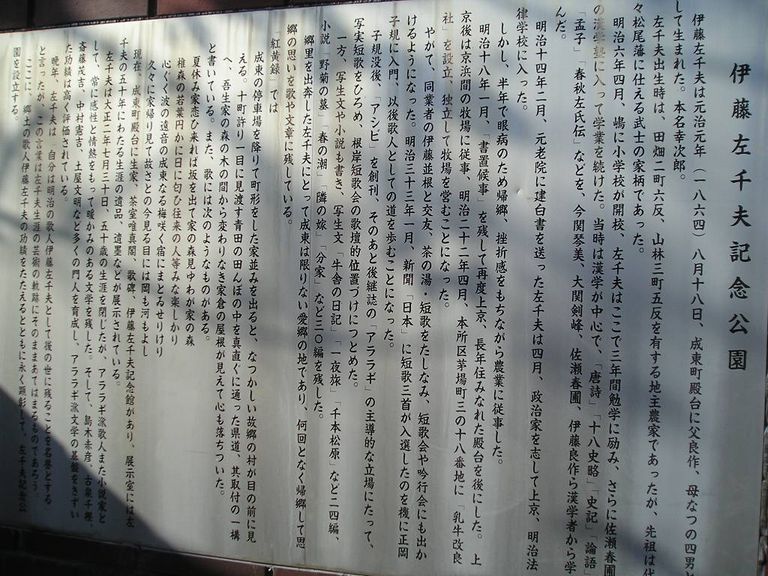 伊藤左千夫記念公園
伊藤左千夫は元治元年（一八六四）八月十八日、成東町殿台に父良作、母なつの四男
して生まれた。本名幸次郎。
左千夫出生時は、田畑二町六反、山林三町五反を有する地主農家であったが、先祖は代
々松尾藩に仕える武士の家柄であった。
明治六年四月、嶋に小学校が開校、左千夫はここで三年間勉学に励み、さらに佐瀬春圃
の漢学塾に入って学業を続けた。当時は漢学が中心で、「唐詩」「十八史略」「史記」「論語」
「孟子」「春秋左氏伝」などを、今関琴美、大関剣峰、佐瀬春圃、伊藤良作ら漢学者から学
んだ。
明治十四年二月、元老院に建白書を送った左千夫は四月、政治家を志して上京、明治法
律学校に入った。
しかし、半年で眼病のため帰郷、挫折感をもちながら農業に従事した。
明治十八年一月、「書置候事」を残して再度上京、長年住みなれた殿台を後にした。上
京後は京浜間の牧場に従事、明治二十二年四月、本所区茅場町三の十八番地に「乳牛改良
社」を設立、独立して牧場を営むことになった。
やがて、同業者の伊藤並根と交友、茶の湯・短歌をたしなみ、短歌会や吟行会にも出か
けるようになった。明治三十三年一月、新聞「日本」に短歌三首が入選したのを機に正岡
子規に入門、以後歌人としての道を歩むことになった。
子規没後、「アシビ」を創刊、そのあと後継誌の「アララギ」の主導的な立場にたって、
写実短歌をひろめ、根岸短歌会の歌壇的位置づけにつとめた。
一方、写生文や小説も書き、写生文「牛舎の日記」「一夜旅」「千本松原」など二四編、
小説「野菊の墓」「春の潮」「隣の嫁」「分家」など三〇編を残した。
郷里を出奔した左千夫にとって成東は限りない愛郷の地であり、何回となく帰郷して思
郷の思いを歌や文章に残している。
「紅黄録」では
成東の停車場を降りて町形をした家並みを出ると、なつかしい故郷の村が目の前に見
える。十町許り一目に見渡す青田のたんぼの中を真直ぐに通った県道、其取付の一構
へ、吾生家の森の木の間から変わりなき家倉の屋根が見えて心も落ちついた。
と書いている。また、歌には次のようなものがある。
夏休み家恋ひ来れば坂を出て家の森見ゆわが家の森
椎森の若葉円かに日に匂ひ往来の人等みな楽しかり
心ぐく波の遠音の成東なる梅咲く宿にまどゐせりけり
久々に家帰り見て故さとの今見る目には岡も河もよし
現在、成東町殿台に生家、茶室唯真閣、歌碑、伊藤左千夫記念館があり、展示室には左
千夫の五十年にわたる生涯の遺品、遺墨などが展示されている。
左千夫は大正二年七月三十日、五十歳の生涯を閉じたが、アララギ派歌人また小説家と
して、常に感性と情熱をもって暖かみのある文学を残した。そして、島木赤彦、古泉千樫、
斎藤茂吉、中村憲吉、土屋文明など多くの門人を育成し、アララギ派文学の基盤をきずい
た功績は高く評価されている。
晩年、左千夫は「自分は明治の歌人伊藤左千夫として後の世に残ることを名誉とする」
と言ったが、この言葉は左千夫生涯の芸術の軌跡にそのままあてはまるものであろう。
ここに、郷土の歌人伊藤左千夫の功績をたたえるとともに永く顕彰して、左千夫記念公
園を設立する。